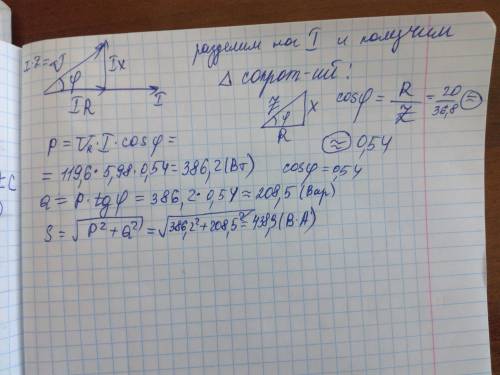 I·Z=U
φ
IX
IR
I
разделим на I и получим
Δ сопрот-ий!
Z
X
φ
R
cosφ = R/Z = 20/36,8 ≈
≈ 0,54
P = U · I · cosφ =
= 119,6 · 5,98 · 0,54 = 386,2 (Вт)
cosφ = 0,54
Q = P · tgφ = 386,2 · 0,54 ≈ 208,5 (Вар)
S = √(P² + Q²) = √(386,2² + 208,5²) = 438,9 (В·А)